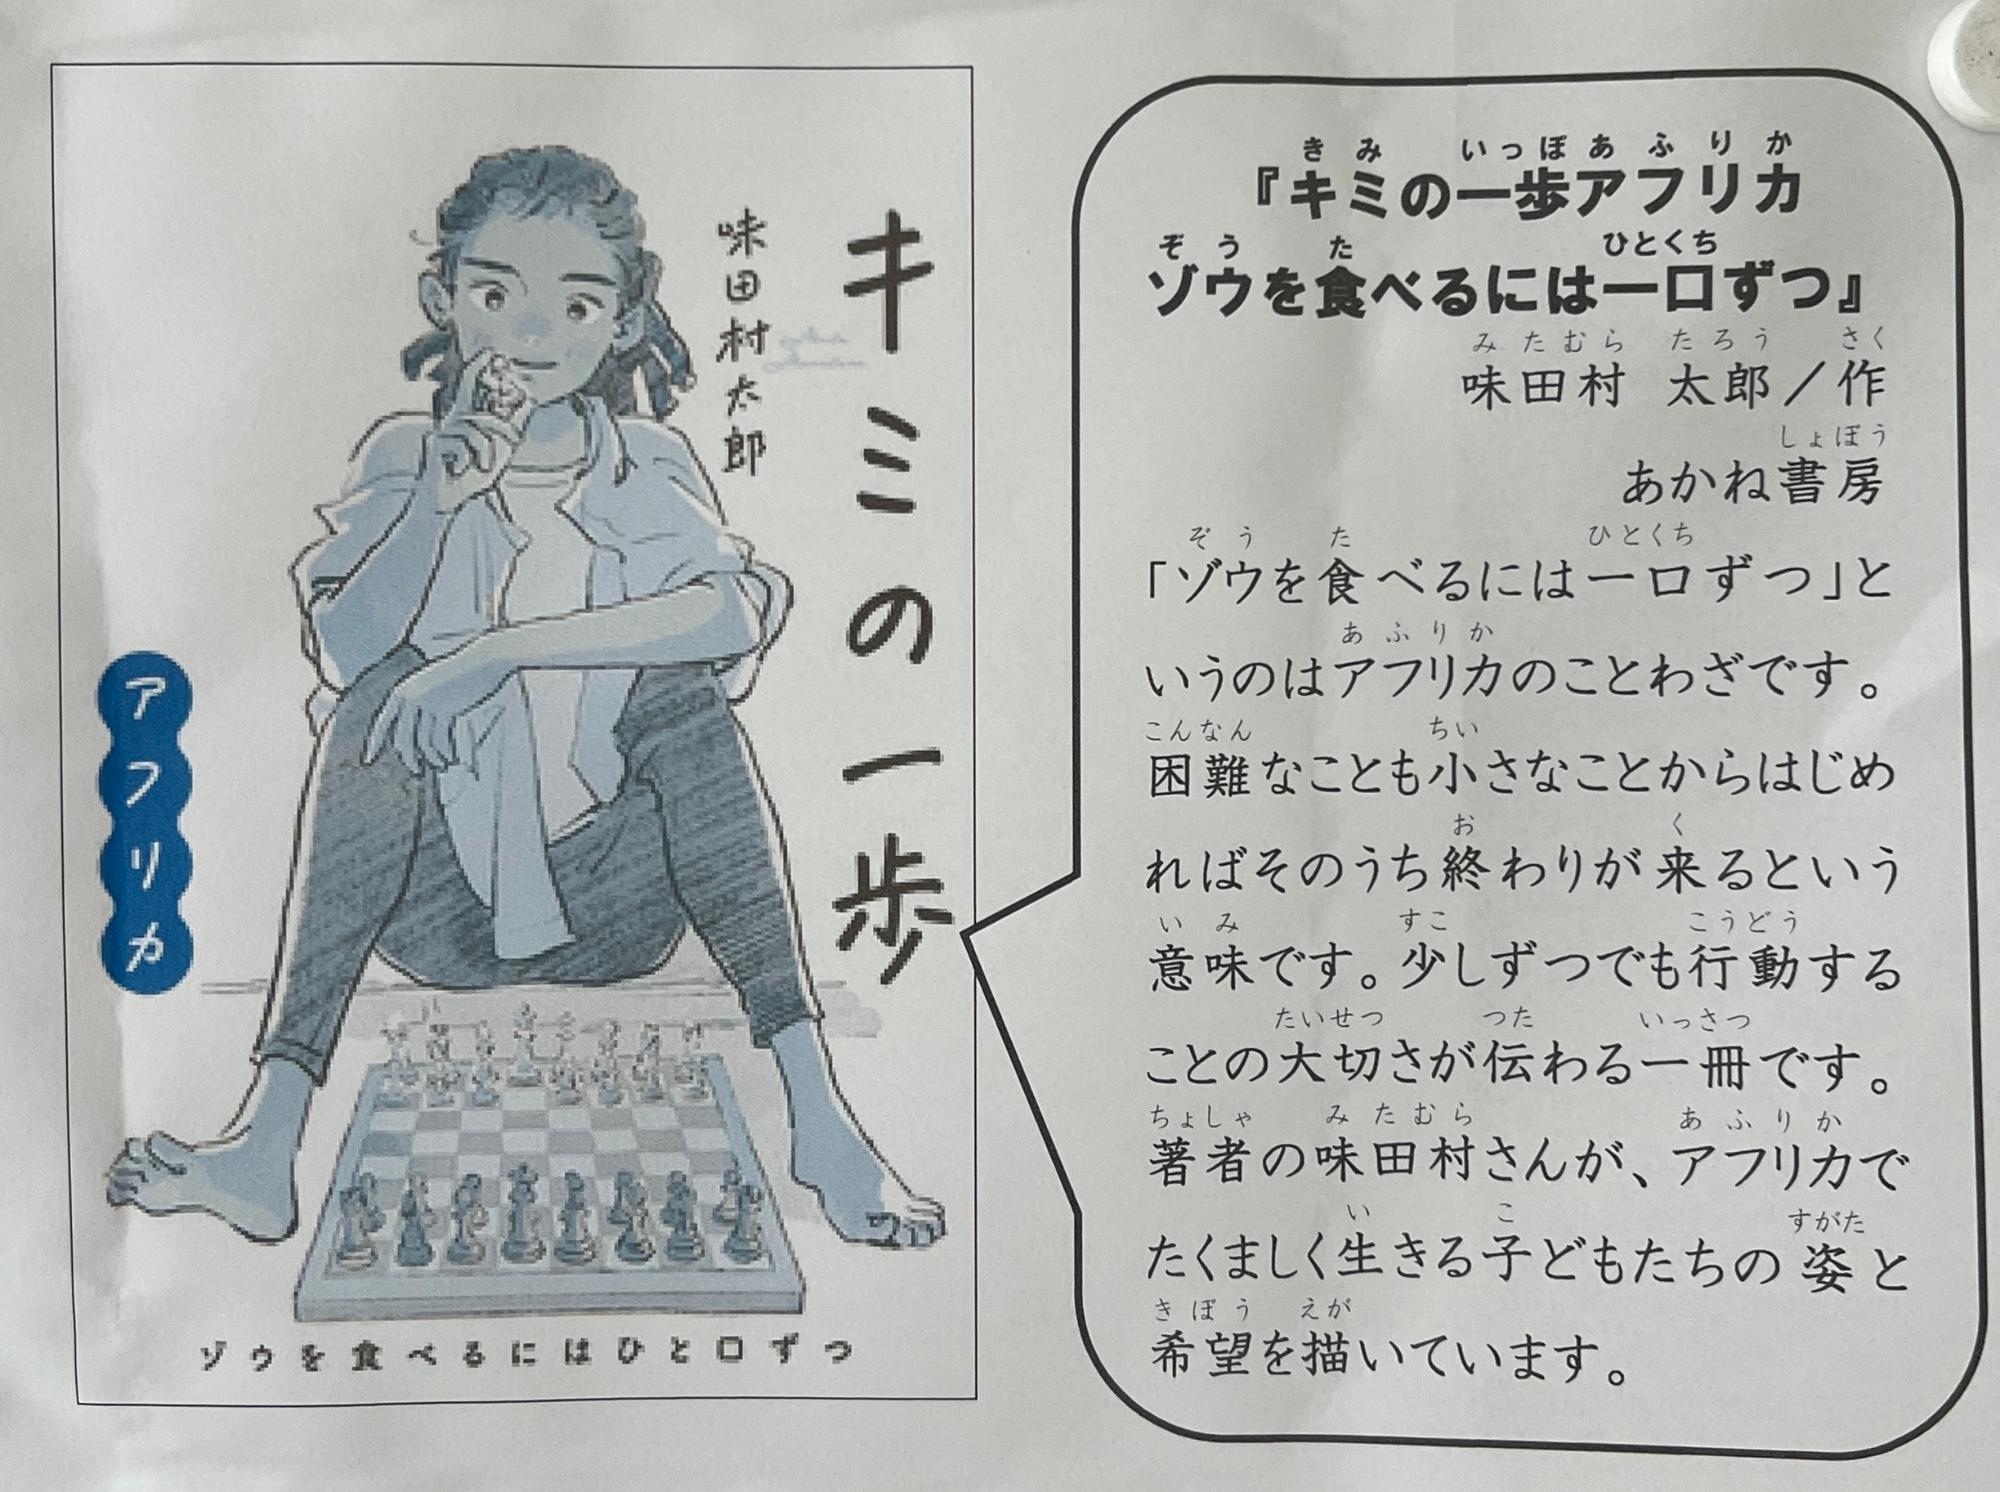 キミの一歩
味田村太郎
アフリカ
ゾウを食べるにはひと口ずつ
きみ いっぽあふりか
『キミの一歩アフリカ
ぞう た ひとくち
ゾウを食べるには一口ずつ』
みたむら たろう さく
味田村 太郎／作
しょぼう
あかね書房
ぞう た ひとくち
「ゾウを食べるには一口ずつ」と
あふりか
いうのはアフリカのことわざです。
こんなん ちい
困難なことも小さなことからはじめ
お く
ればそのうち終わりが来るという
いみ すこ こうどう
意味です。少しずつでも行動する
たいせつ つた いっさつ
ことの大切さが伝わる一冊です。
ちょしゃ みたむら あふりか
著者の味田村さんが、アフリカで
い こ すがた
たくましく生きる子どもたちの姿と
きぼう えが
希望を描いています。